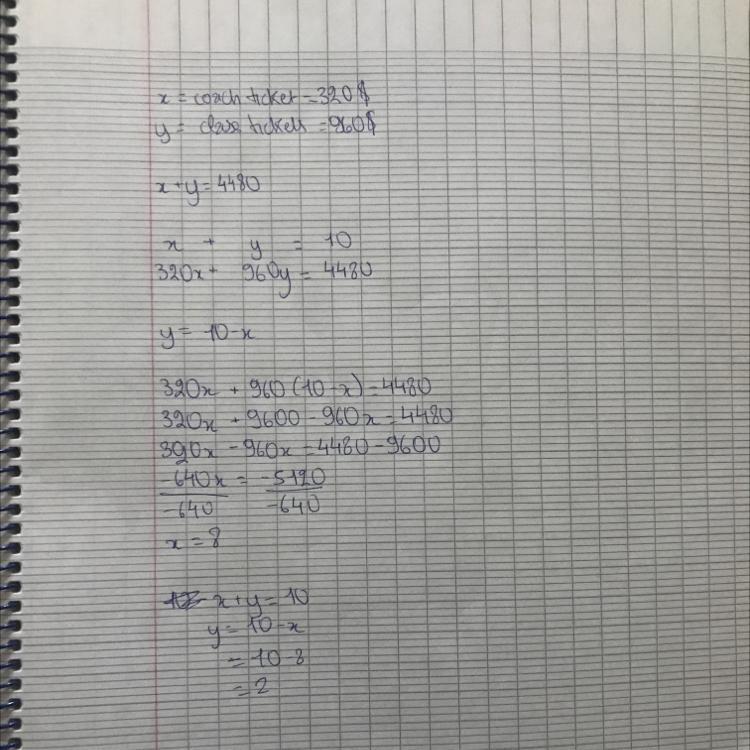 x = coach ticket = 320$
y = class tickets = 960$
x + y = 4480
x + y = 10
320x + 960y = 4480
y = 10 - x
320x + 960 (10 - x) = 4480
320x + 9600 - 960x = 4480
320x - 960x = 4480 - 9600
-640x = -5120
-640 -640
x = 8
x + y = 10
y = 10 - x
= 10 - 8
= 2